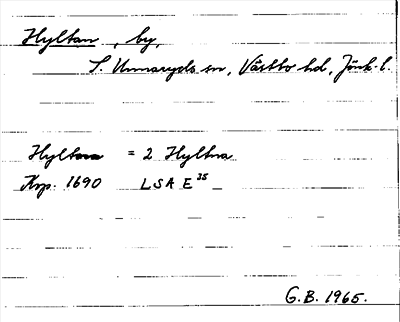 Hyltan, by,
S. Unnaryds sn, Västbo hd, Jönk. l.
Hyltna = 2 Hyltna
Krp. 1690 LSA E 35
G.B. 1965.